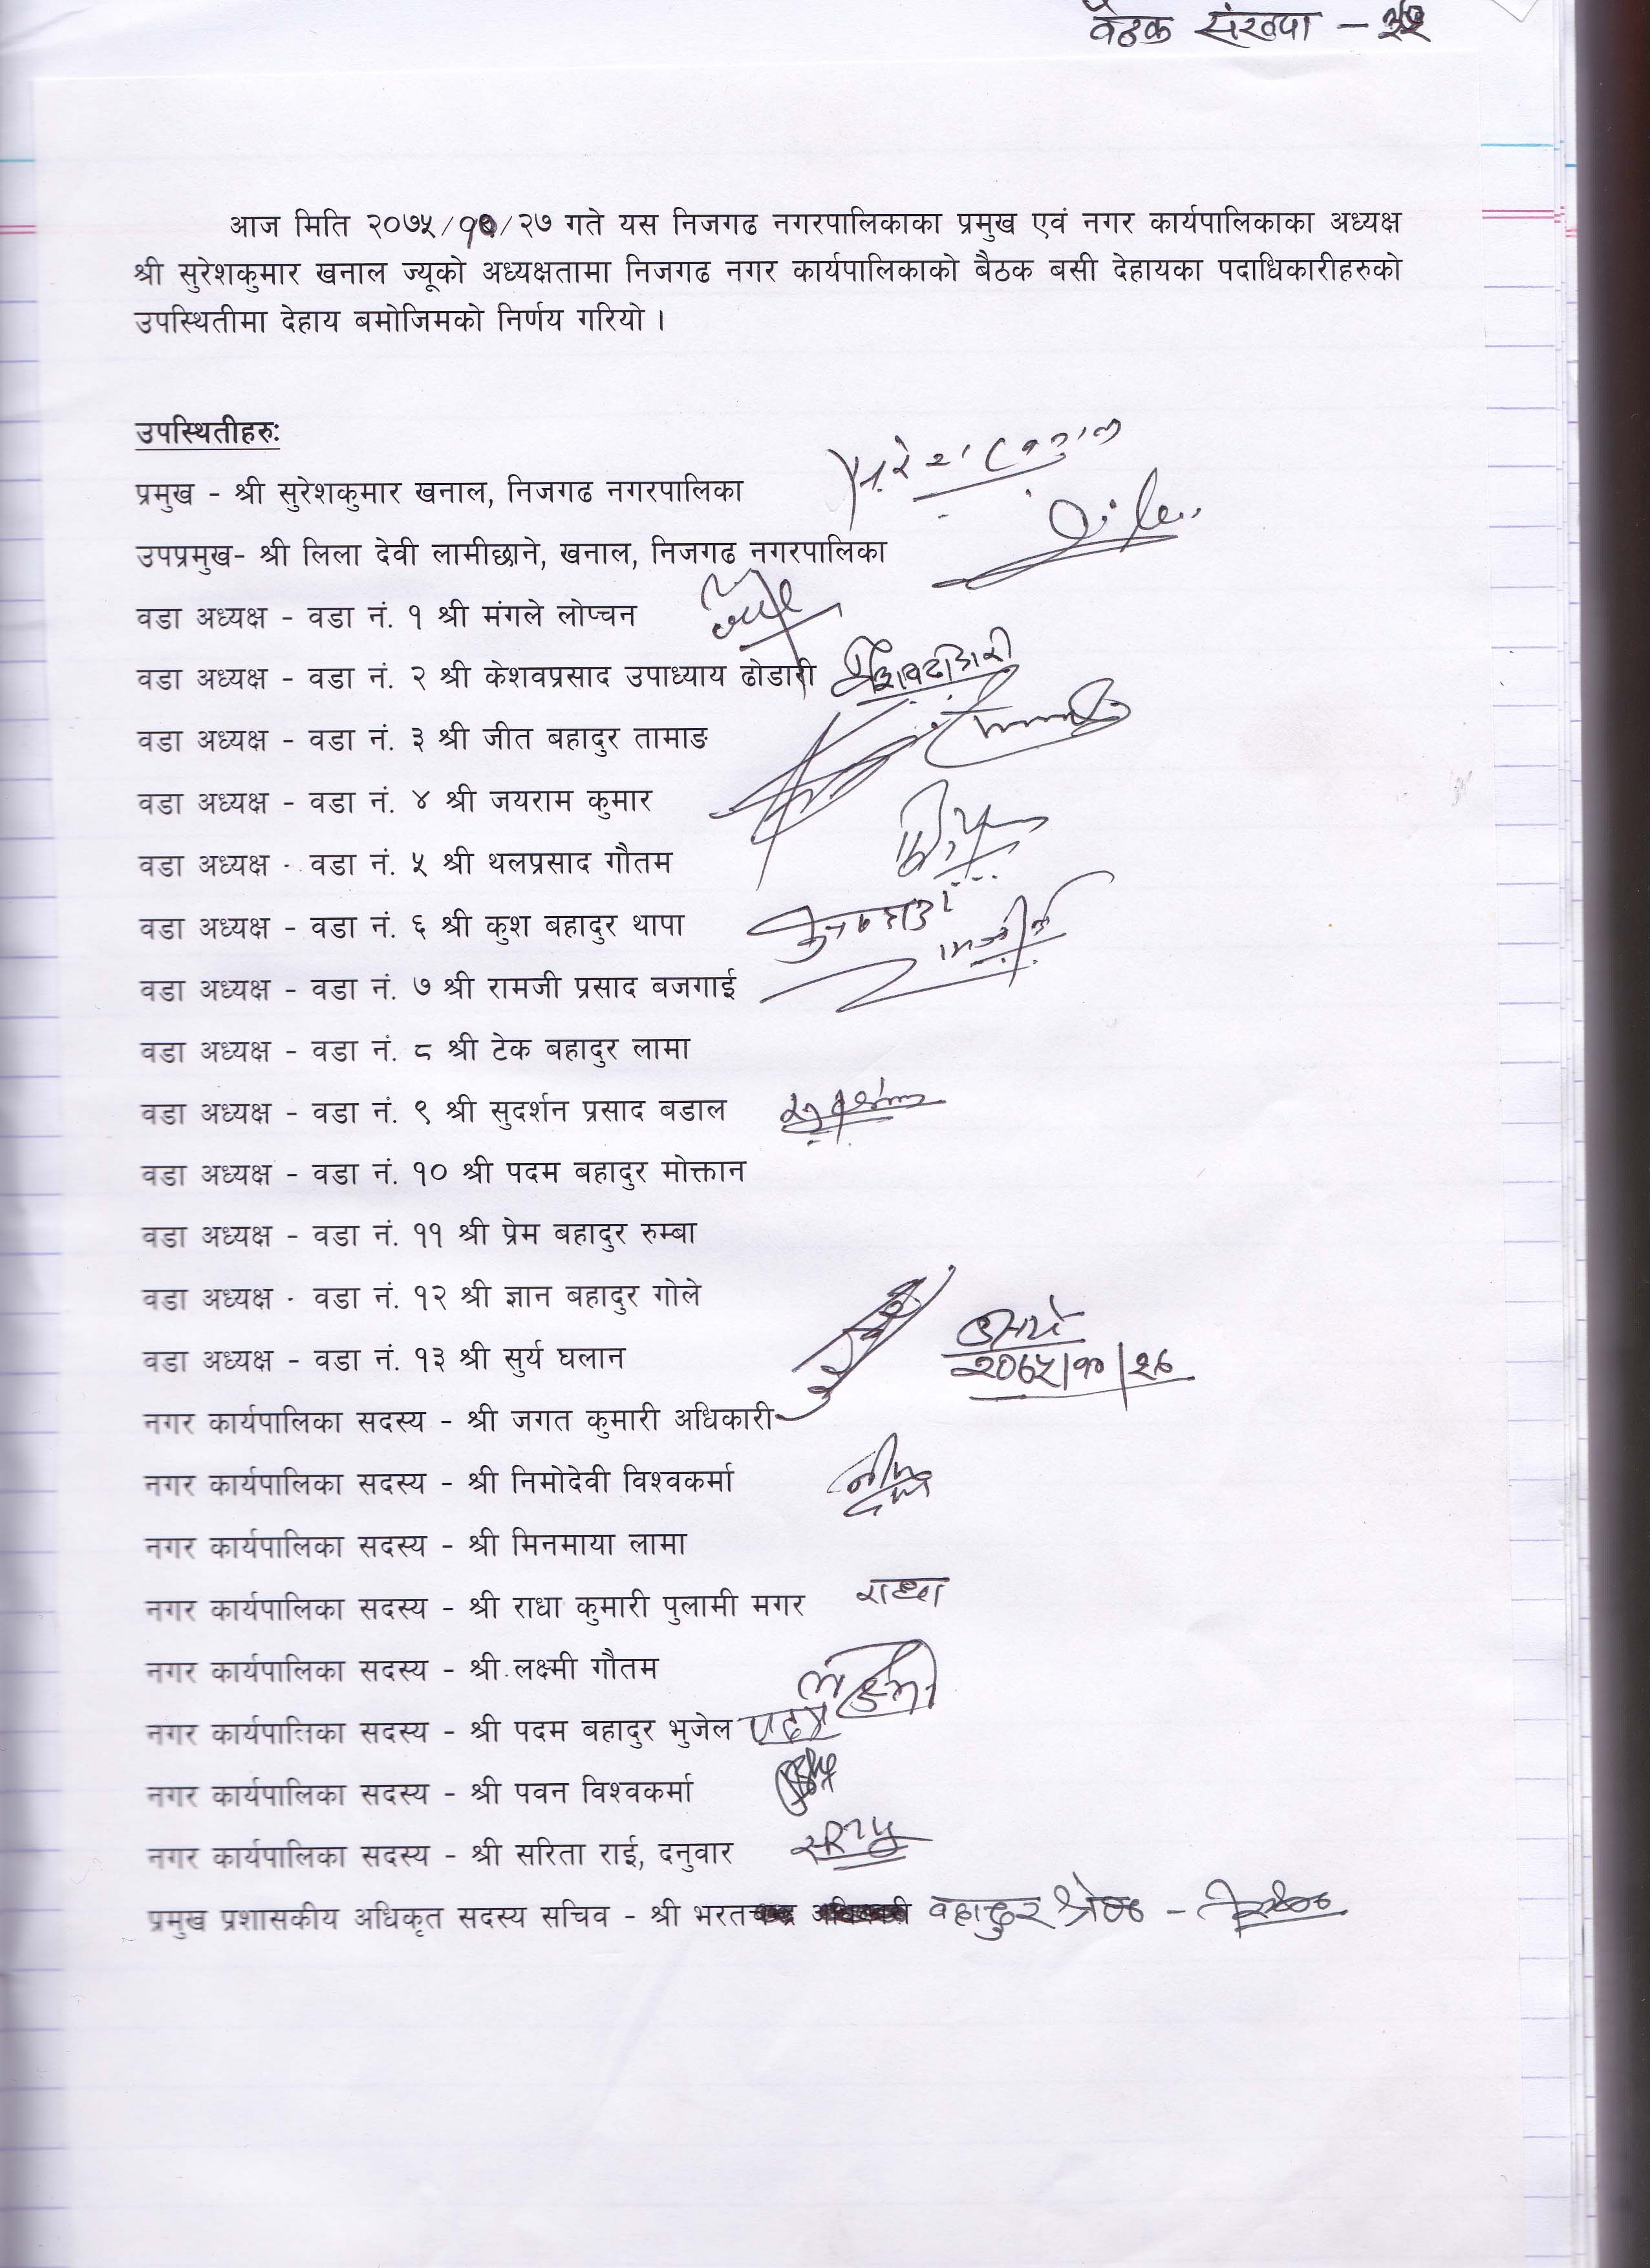 बैठक संख्या -
आज मिति २०७५/१०/२७ गते यस निजगढ नगरपालिकाका प्रमुख एवं नगर कार्यपालिकाका अध्यक्ष
श्री सुरेशकुमार खनाल ज्यूको अध्यक्षतामा निजगढ नगर कार्यपालिकाको बैठक बसी देहायका पदाधिकारीहरुको
उपस्थितीमा देहाय बमोजिमको निर्णय गरियो ।
उपस्थितीहरु:
प्रमुख - श्री सुरेशकुमार खनाल, निजगढ नगरपालिका
उपप्रमुख- श्री लिला देवी लामीछाने, खनाल, निजगढ नगरपालिका
वडा अध्यक्ष - वडा नं. १ श्री मंगले लोप्चन
वडा अध्यक्ष - वडा नं. २ श्री केशवप्रसाद उपाध्याय ढोडारी
वडा अध्यक्ष - वडा नं. ३ श्री जीत बहादुर तामाङ
वडा अध्यक्ष - वडा नं. ४ श्री जयराम कुमार
वडा अध्यक्ष - वडा नं. ५ श्री थलप्रसाद गौतम
वडा अध्यक्ष - वडा नं. ६ श्री कुश बहादुर थापा
वडा अध्यक्ष - वडा नं. ७ श्री रामजी प्रसाद बजगाई
वडा अध्यक्ष - वडा नं. ८ श्री टेक बहादुर लामा
वडा अध्यक्ष - वडा नं. ९ श्री सुदर्शन प्रसाद बडाल
वडा अध्यक्ष - वडा नं. १० श्री पदम बहादुर मोक्तान
वडा अध्यक्ष - वडा नं. ११ श्री प्रेम बहादुर रुम्बा
वडा अध्यक्ष - वडा नं. १२ श्री ज्ञान बहादुर गोले
वडा अध्यक्ष - वडा नं. १३ श्री सुर्य घलान
नगर कार्यपालिका सदस्य - श्री जगत कुमारी अधिकारी
नगर कार्यपालिका सदस्य - श्री निमोदेवी विश्वकर्मा
नगर कार्यपालिका सदस्य - श्री मिनमाया लामा
नगर कार्यपालिका सदस्य - श्री राधा कुमारी पुलामी मगर राधा
नगर कार्यपालिका सदस्य - श्री लक्ष्मी गौतम लक्ष्मी
नगर कार्यपालिका सदस्य - श्री पदम बहादुर भुजेल पदम
नगर कार्यपालिका सदस्य - श्री पवन विश्वकर्मा
नगर कार्यपालिका सदस्य - श्री सरिता राई, दनुवार
प्रमुख प्रशासकीय अधिकृत सदस्य सचिव - श्री भरत बहादुर श्रेष्ठ -